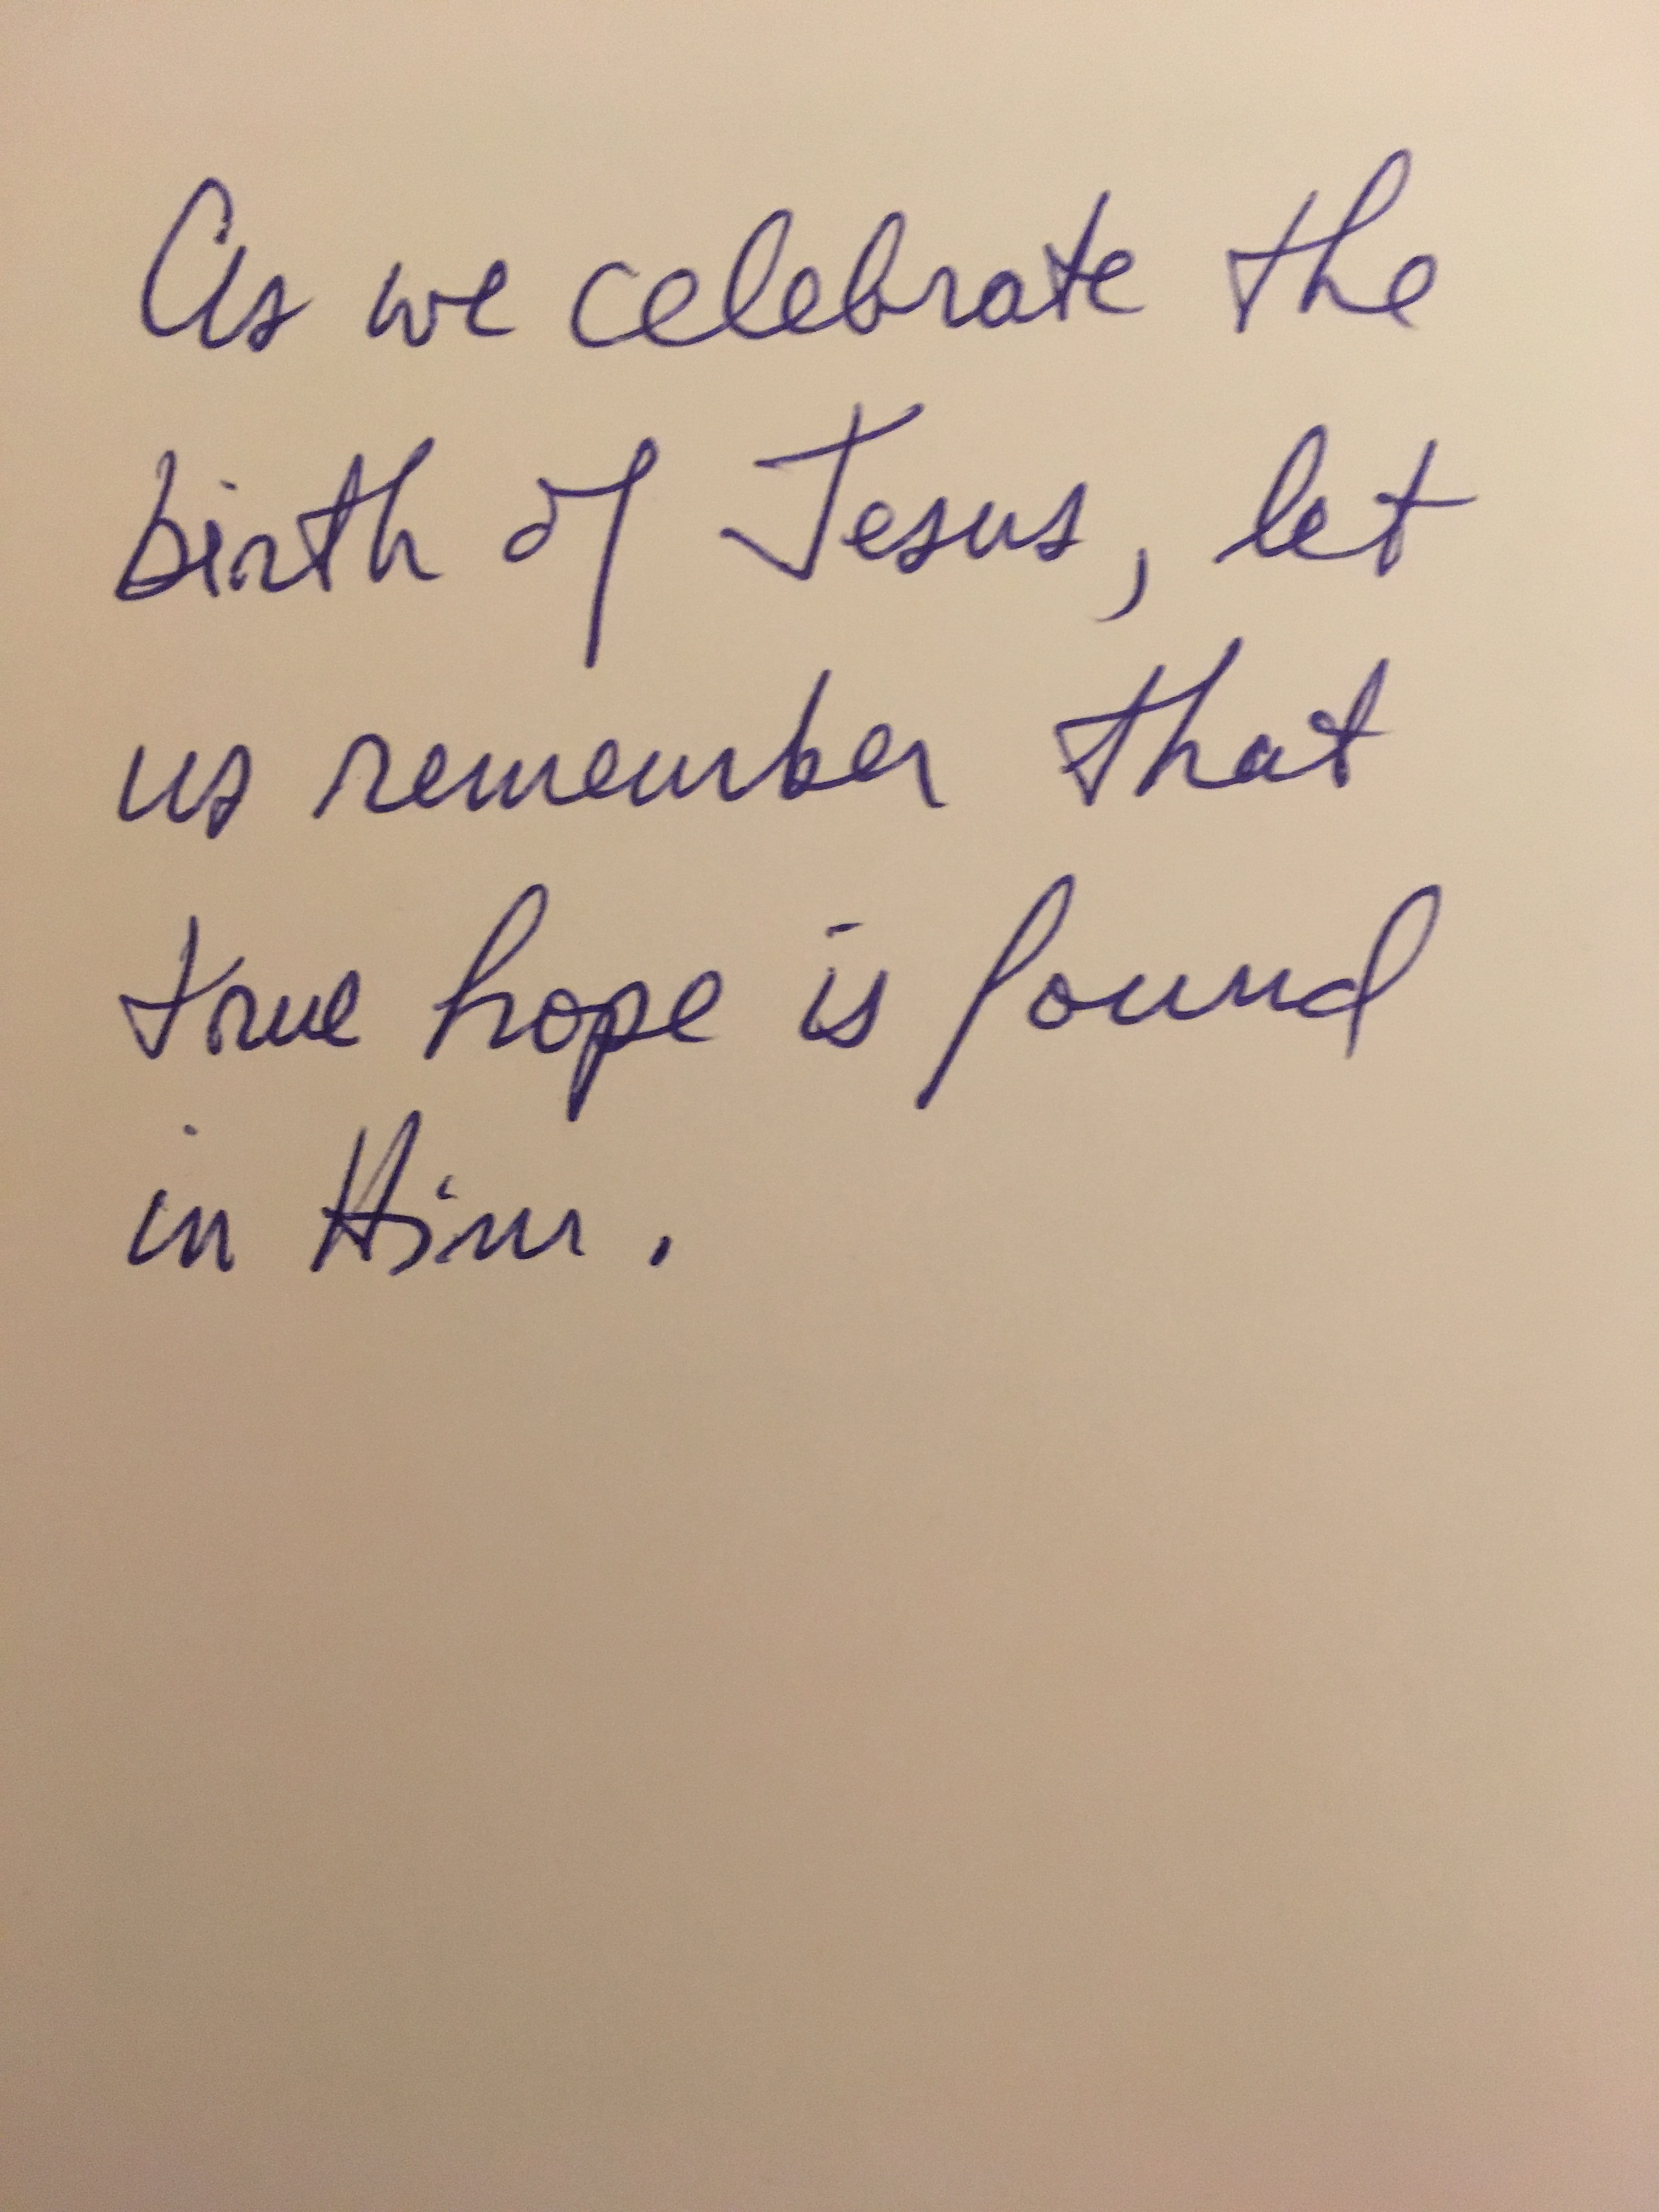 As we celebrate the
birth of Jesus, let
us remember that
true hope is found
in Him.